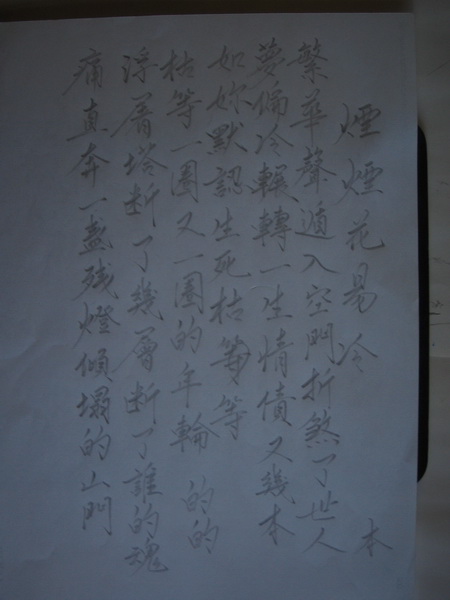 煙煙花易冷 本
繁華聲遁入空門折煞了世人
夢偏冷輾轉一生情債又幾本
如妳默認生死枯等等
枯等一圈又一圈的年輪 的的
浮屠塔断了幾層断了誰的魂
痛直奔一盞残燈傾塌的山門